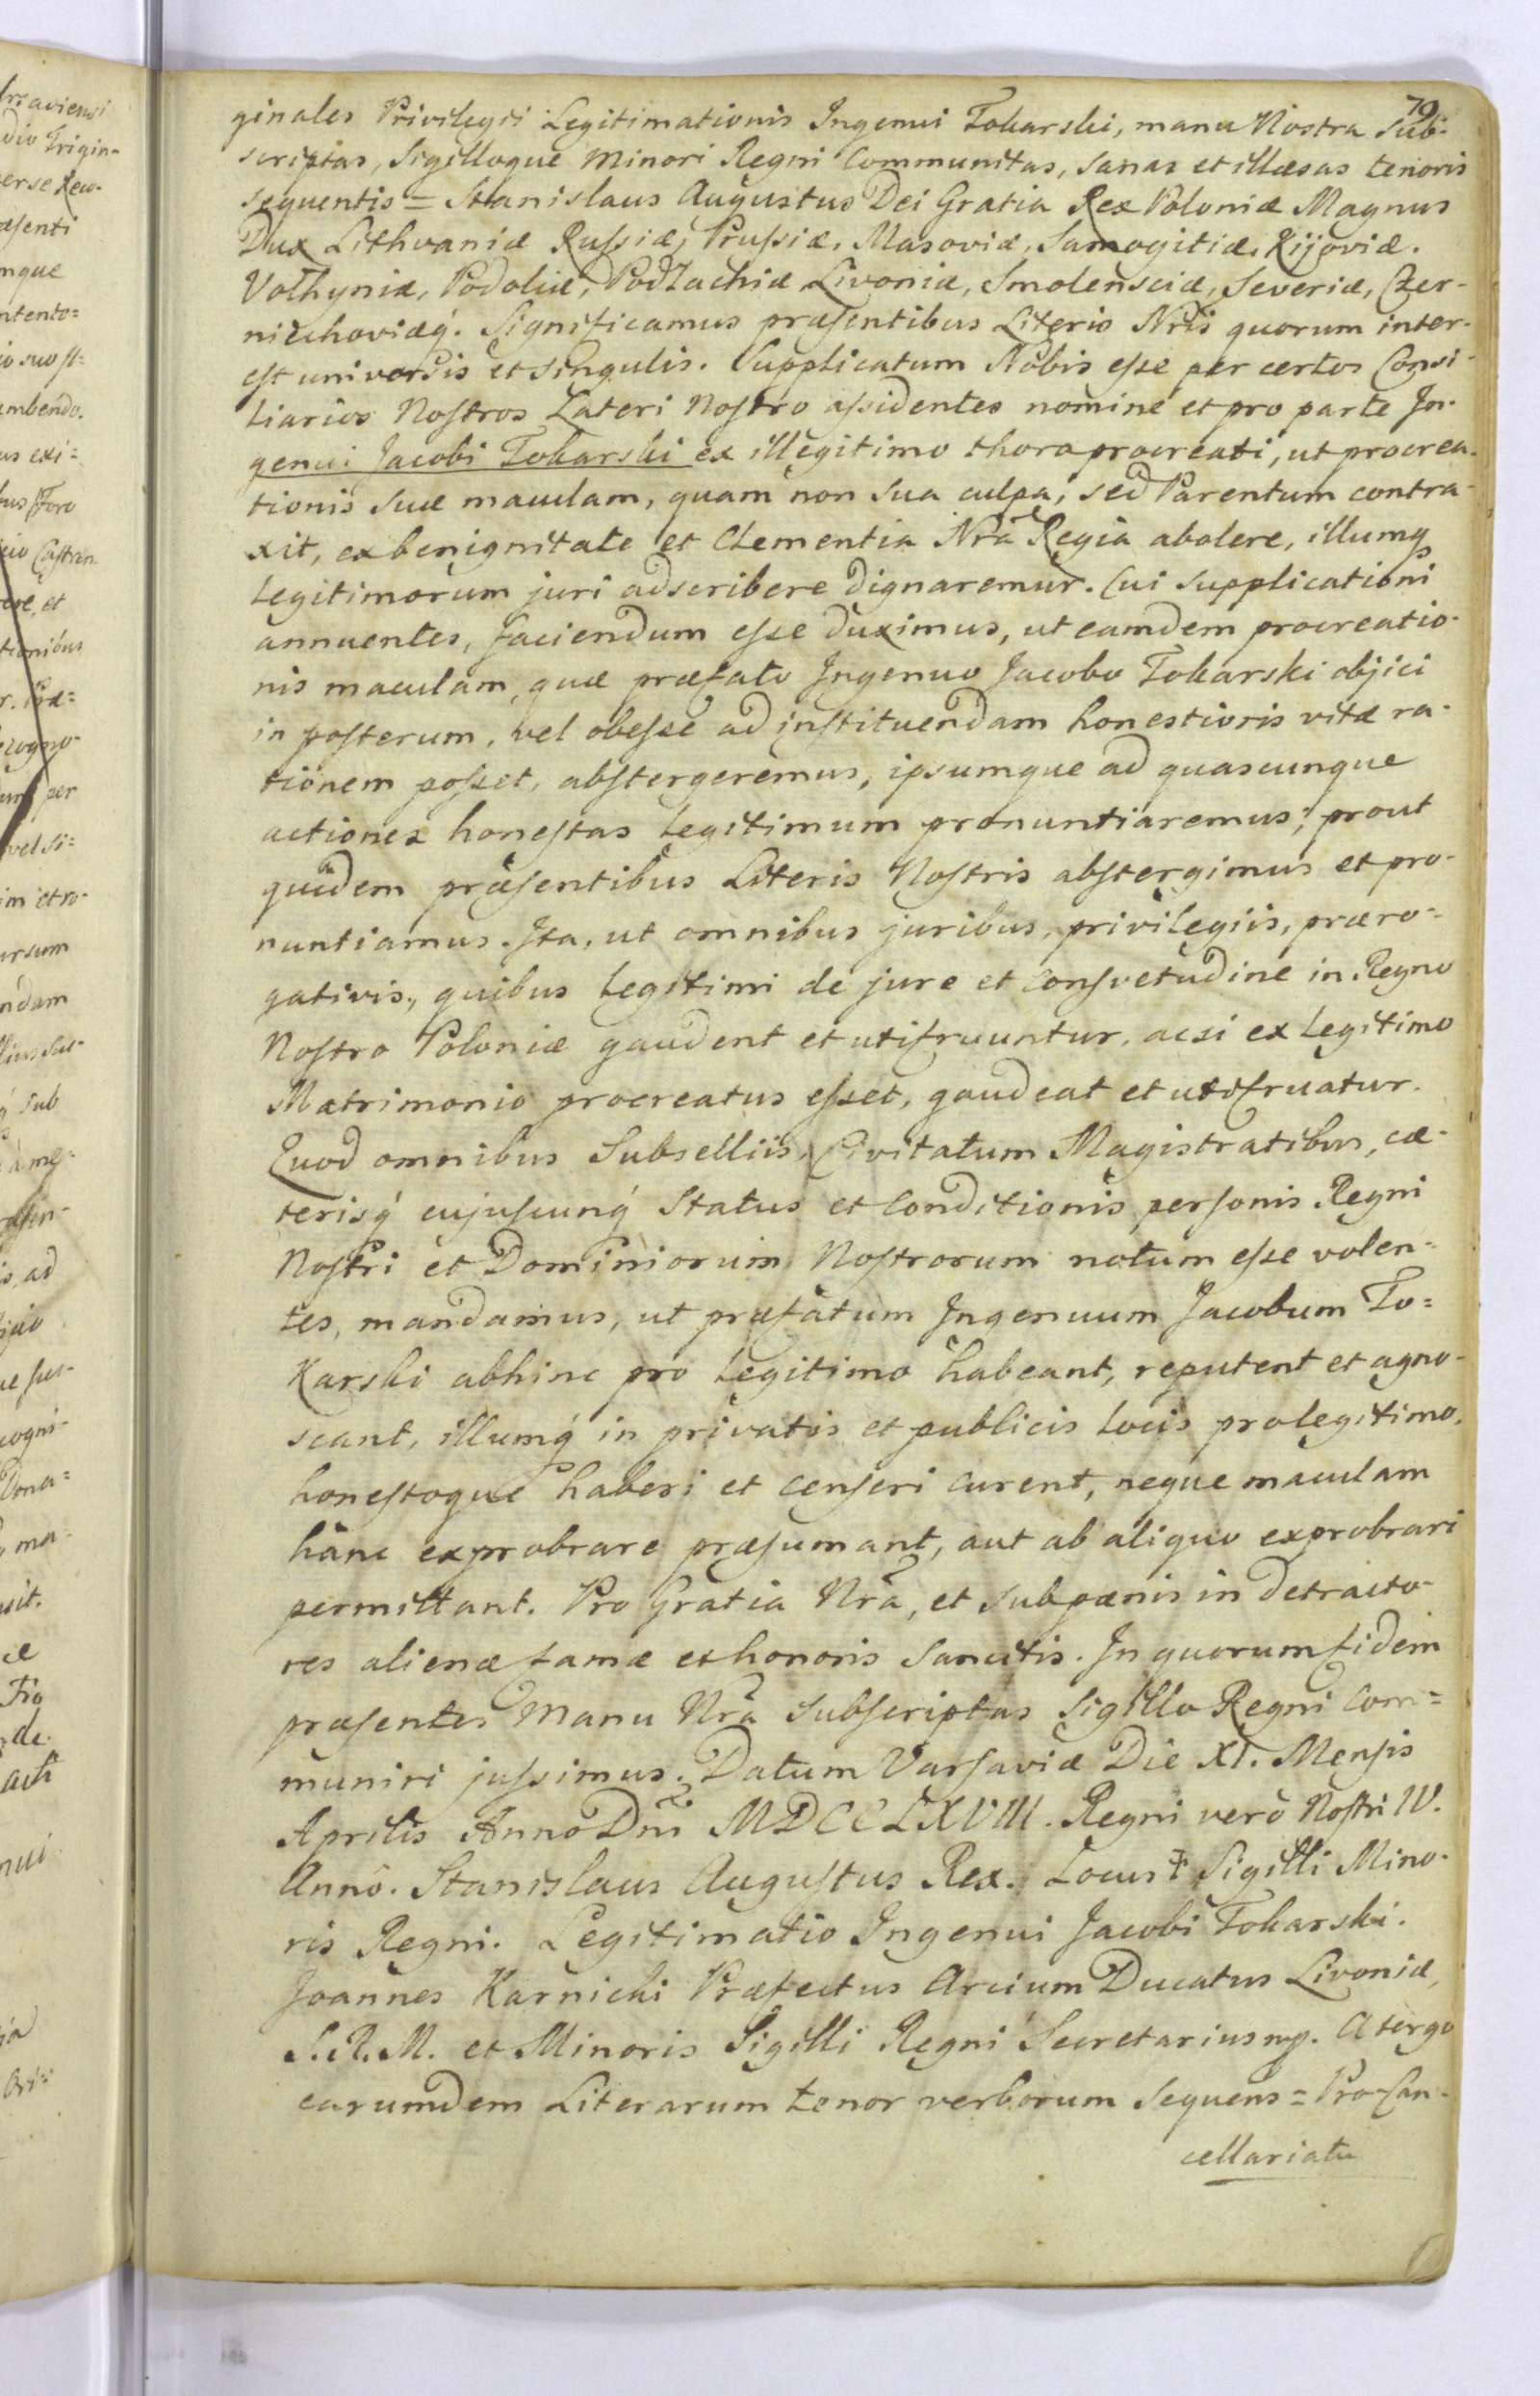 79
ginales Privilegii Legitimationis Ingenui Tokarski, manu Nostra Sub-
scriptas, Sigilloque Minori Regni Communitas, sanas et illæsas tenoris
sequentis = Stanislaus Augustus Dei Gratia Rex Poloniæ Magnus
Dux Lithvaniæ Russiæ, Prussiæ, Masoviæ, Samogitiæ, Kijoviæ.
Volhyniæ, Podoliæ, Podlachiæ Livoniæ, Smolensciæ, Severiæ, Czer-
niechoviæq́. Significamus præsentibus Literis Nr̃is quorum inter-
est universis et singulis. Supplicatum Nobis esse per certos Consi-
liarios Nostros Lateri Nostro assidentes nomine et pro parte In-
genui Jacobi Tokarski ex illegitimo thoro procreati, ut procrea-
tionis suæ maculam, quam non sua culpa, sed Parentum contra-
xit, ex benignitate et Clementia Nr̃a Regia abolere, illumq
Legitimorum juri adscribere dignaremur. Cui supplicationi
annuentes, faciendum esse duximus, ut eamdem procreatio-
nis maculam, quæ præfato Ingenuo Jacobo Tokarski objici
in posterum, vel obesse ad instituendam honestioris vitæ ra-
tionem posset, abstergeremus, ipsumque ad quascunque
actiones honestas legitimum pronuntiaremus; prout
quidem præsentibus Literis Nostris abstergimus et pro-
nuntiamus. Ita, ut omnibus juribus, privilegiis, præro-
gativis, quibus legitimi de jure et consvetudine in Regno
Nostro Poloniæ gaudent et utifruuntur, acsi ex legitimo
Matrimonio procreatus esset, gaudeat et utifruatur.
Quod omnibus Subselliis, Civitatum Magistratibus, cæ-
terisq́ cujuscunq́ Status et Conditionis personis Regni
Nostri et Dominiorum Nostrorum notum esse volen=
tes, mandamus, ut præfatum Ingenuum Jacobum To=
Karski abhinc pro legitimo habeant, reputent et agno-
scant, illumq́ in privatis et publicis locis pro legitimo,
honestoque haberi et censeri curent, neque maculam
hanc exprobrare præsumant, aut ab aliquo exprobrari
permittant. Pro Gratia Nr̃a, et sub pœnis in detracto-
res alienæ famæ et honoris sancitis. In quorum fidem
præsentes Manu Nr̃a subscriptas Sigillo Regni Com=
muniri jussimus. Datum Varsaviæ Die XI. Mensis
Aprilis Anno Dn̄i MDCCLXVIII. Regni verò Nostri IV.
Annô. Stanislaus Augustus Rex. Locus ‡ Sigilli Mino-
ris Regni. Legitimatio Ingenui Jacobi Tokarski.
Joannes Karnicki Præfectus Arcium Ducatus Livoniæ,
S.R.M. et Minoris Sigilli Regni Secretarius mp. A tergo
earumdem Literarum tenor verborum sequens = Pro Can-
cellariatu